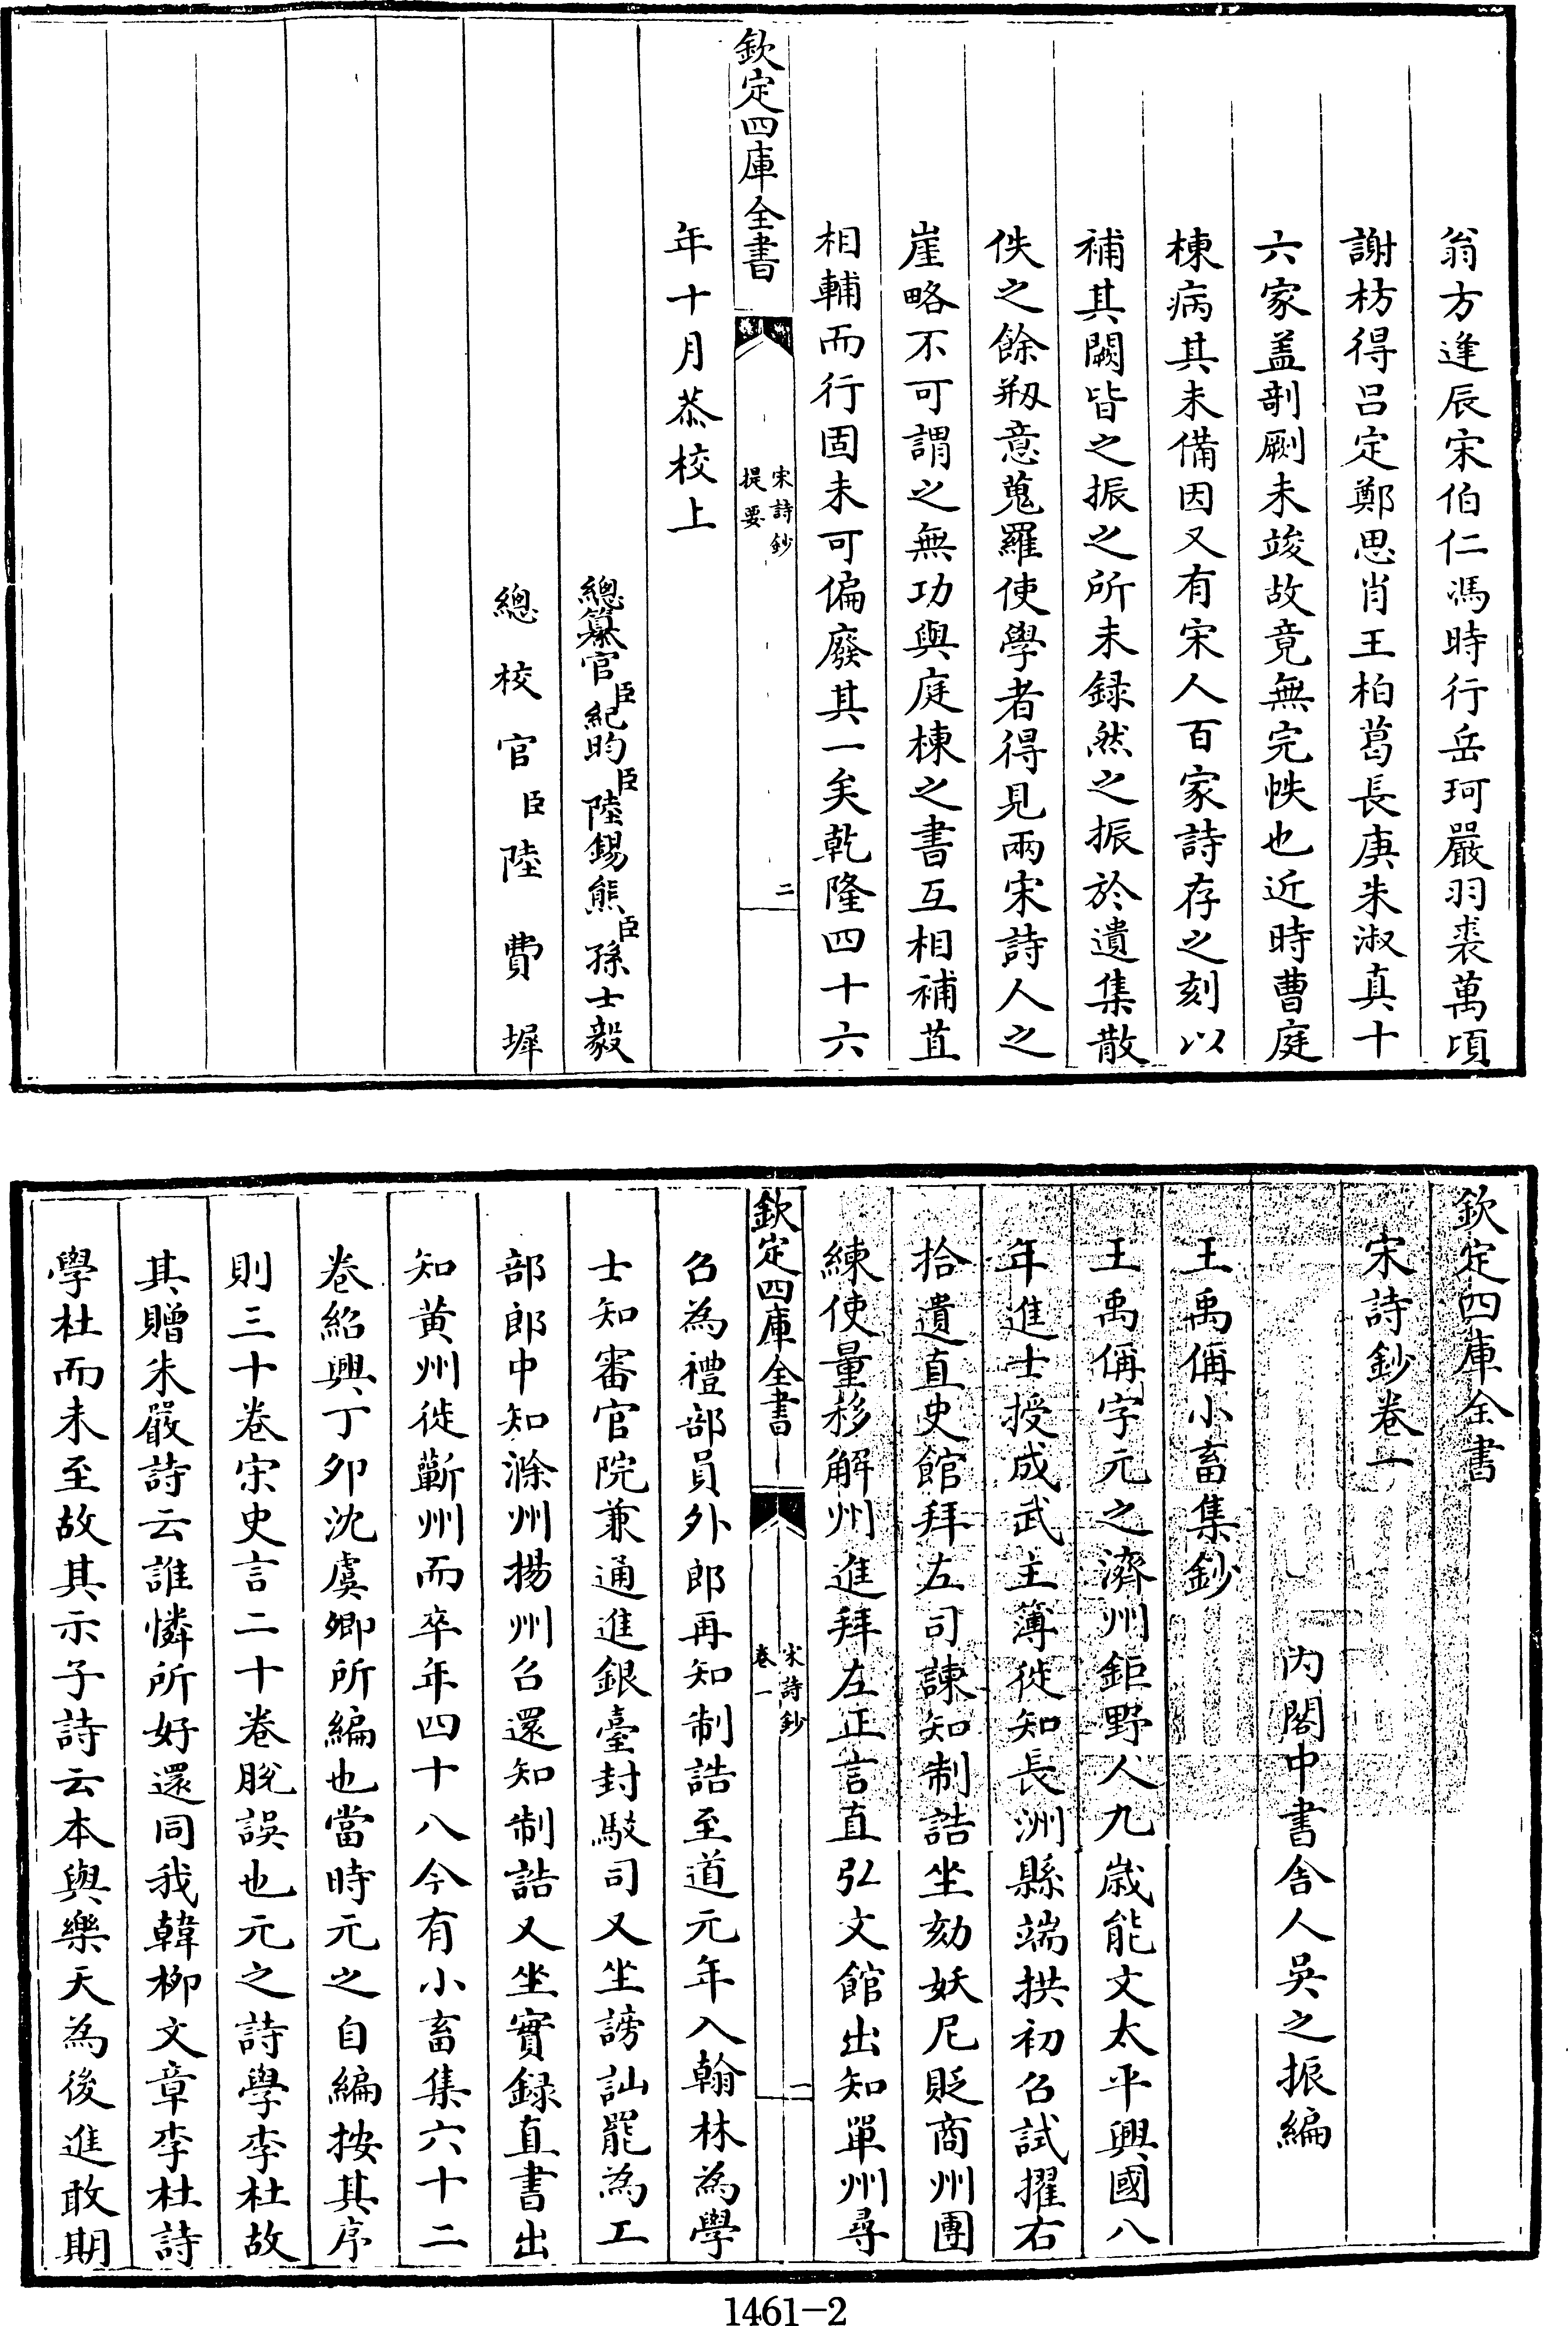 翁方逢辰宋伯仁馮時行岳珂嚴羽裘萬頃
謝枋得呂定鄭思肖王柏葛長庚朱淑真十
六家盖剞劂未竣故竟無完帙也近時曹庭
棟病其未備因又有宋人百家詩存之刻以
補其闕皆之振之所未録然之振於遺集散
佚之餘剏意蒐羅使學者得見兩宋詩人之
崖略不可謂之無功與庭棟之書互相補苴
相輔而行固未可偏廢其一矣乾隆四十六
欽定四庫全書
宋詩鈔
提要
二
年十月恭校上
總纂官臣紀昀臣陸錫熊臣孫士毅
總校官臣陸費墀
欽定四庫全書
宋詩鈔卷一
內閣中書舎人吳之振編
王禹偁小畜集鈔
王禹偁字元之濟州鉅野人九歲能文太平興國八
年進士授成武主簿徙知長洲縣端拱初召試擢右
拾遺直史館拜左司諫知制誥坐劾妖尼貶商州團
練使量移解州進拜左正言直弘文館出知單州尋
欽定四庫全書
宋詩鈔
卷一
一
召為禮部員外郎再知制誥至道元年入翰林為學
士知審官院兼通進銀臺封駁司又坐謗訕罷為工
部郎中知滁州揚州召還知制誥又坐實録直書出
知黄州徙蘄州而卒年四十八今有小畜集六十二
卷紹興丁夘沈虞卿所編也當時元之自編按其序
則三十卷宋史言二十卷脫誤也元之詩學李杜故
其贈朱嚴詩云誰憐所好還同我韓柳文章李杜詩
學杜而未至故其示子詩云本與樂天為後進敢期
1461-2